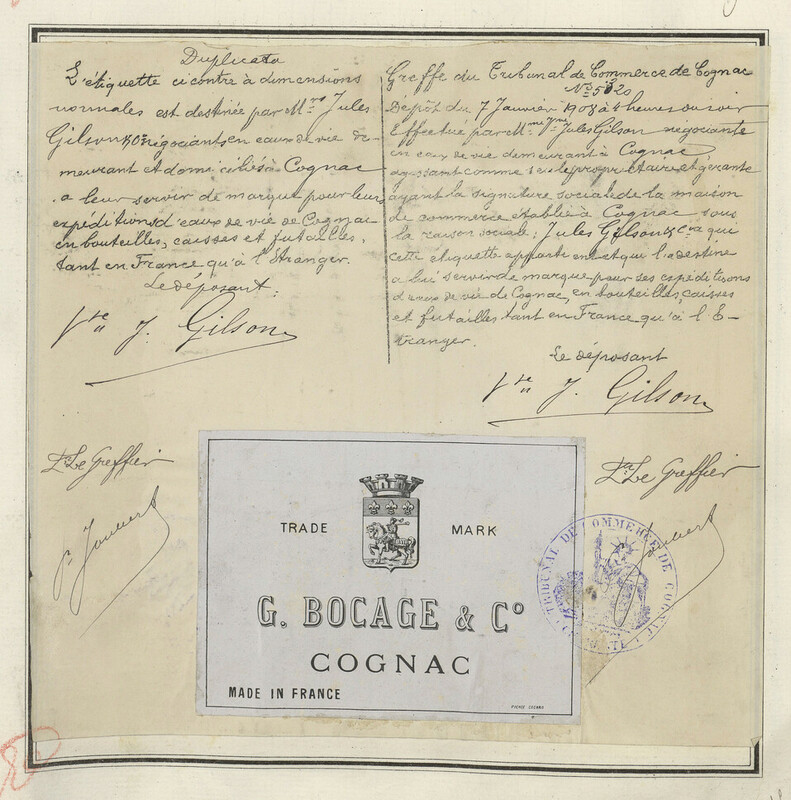 Duplicata
L'étiquette ci contre à dimensions
normales est destinée par Mme Jules
Gilson & Co négociants en eaux de vie de-
meurant et domiciliés à Cognac
a leur servir de marque pour leurs
expéditions d'eaux de vie de Cognac
en bouteilles, caisses et futailles,
tant en France qu'à l'Etranger.
Le déposant:
Vve J. Gilson
Greffe du Tribunal de Commerce de Cognac
No 5520
Dépôt du 7 Janvier 1908 à 4 heures du soir
Effectué par Mme Vve Jules Gilson négociante
en eaux de vie demeurant à Cognac
agissant comme seule propriétaire et gérante
ayant la signature sociale de la maison
de commerce établie à Cognac sous
la raison sociale: Jules Gilson & Co a que
cette étiquette appartenant et qu'il a destine
a lui servir de marque pour ses expéditions
d'eaux de vie de Cognac, en bouteilles, caisses
et futailles tant en France qu'à l'E-
tranger.
Le déposant
Vve J. Gilson
Le Greffier
Le Greffier
TRADE MARK
G. BOCAGE & Co
COGNAC
MADE IN FRANCE
TRIBUNAL DE COMMERCE DE COGNAC